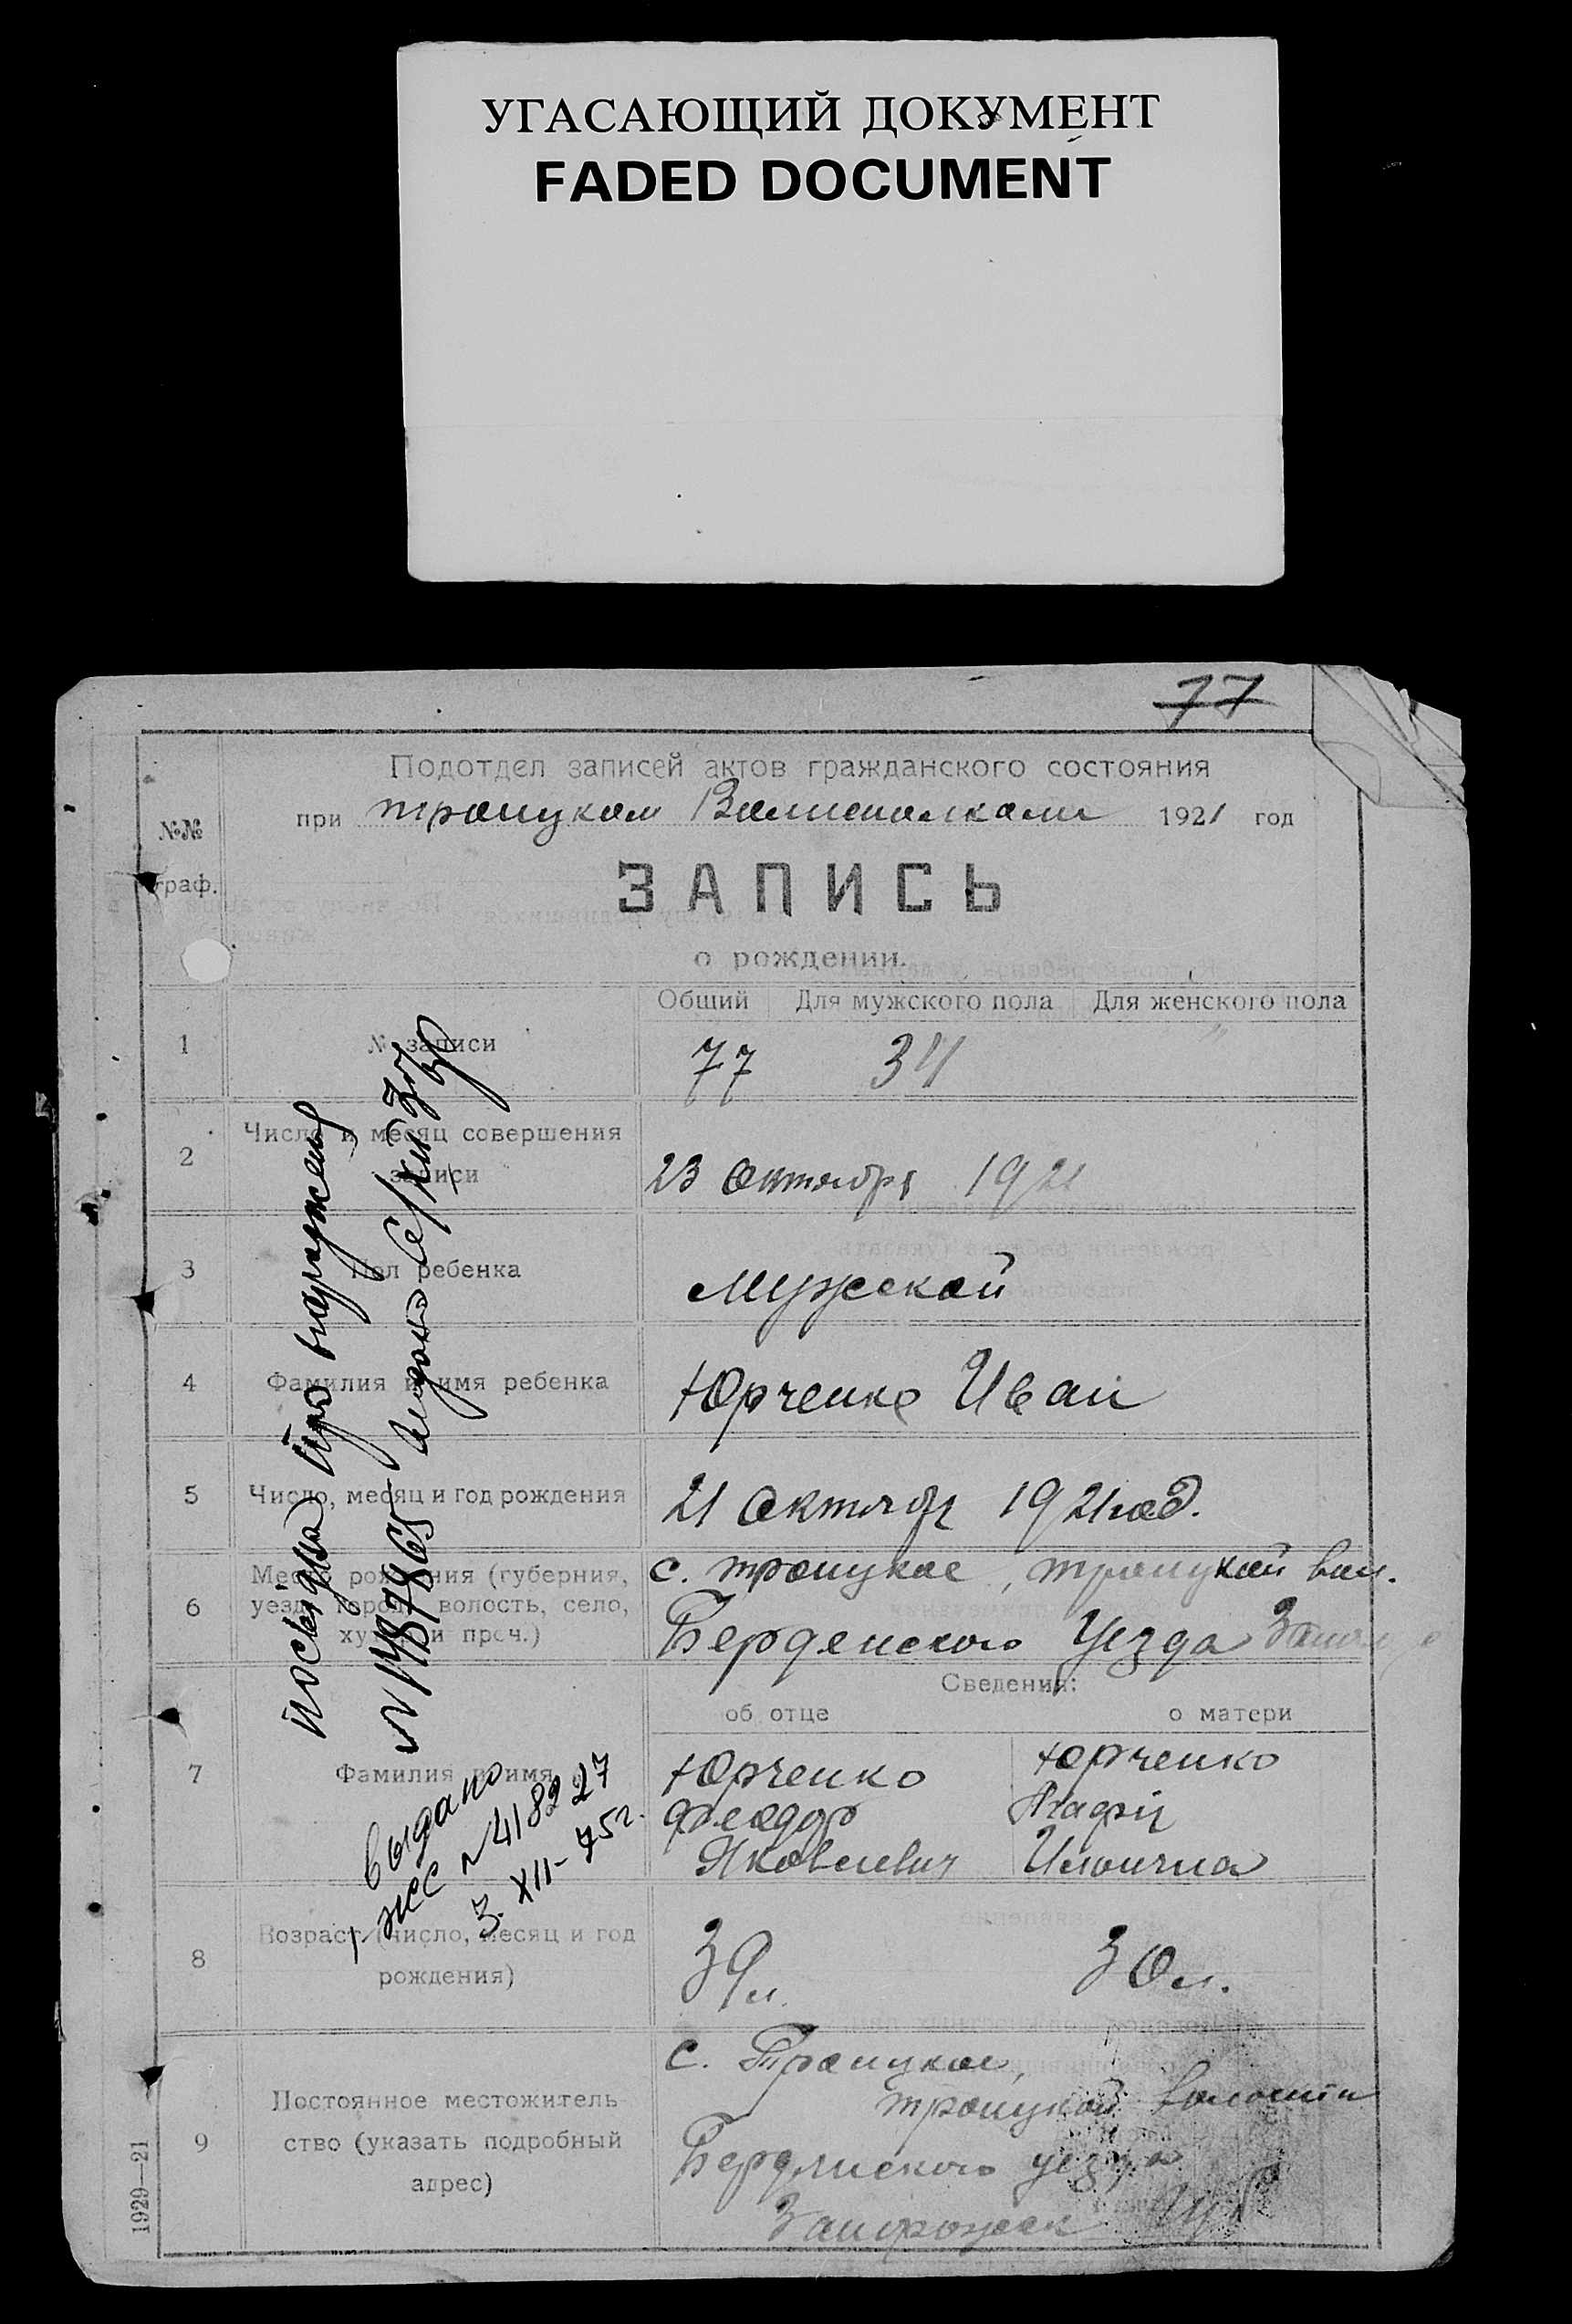 УГАСАЮЩИЙ ДОКУМЕНТ
FADED DOCUMENT
77
Подотдел записей актов гражданского состояния
при троицком 1921 год
№№
граф.
ЗАПИСЬ
о рождении.
Общий Для мужского пола Для женского пола
1 № записи 77 34 "
2 Число и месяц совершения
записи
23 октября 1921
3 Пол ребенка Мужской
4 Фамилия и имя ребенка Юрченко Иван
5 Число, месяц и год рождения 21 октября 1921 год.
6 Место рождения (губерния,
уезд, город, волость, село,
хутор и проч.)
с. троицкое, троицкой вол.
Берденского Уезда
Сведения:
об отце о матери
7 Фамилия и имя
Юрченко Юрченко
Феодор Мария
Яковлевич
8 Возраст (число, месяц и год
рождения)
39 л. 30 л.
9 Постоянное местожитель
ство (указать подробный
адрес)
с. Троицкое,
троицкой волости
Бердянского уезда
Запорожск Губ
про
выдано
№ 418227
3. XII - 75 г.
1929—21